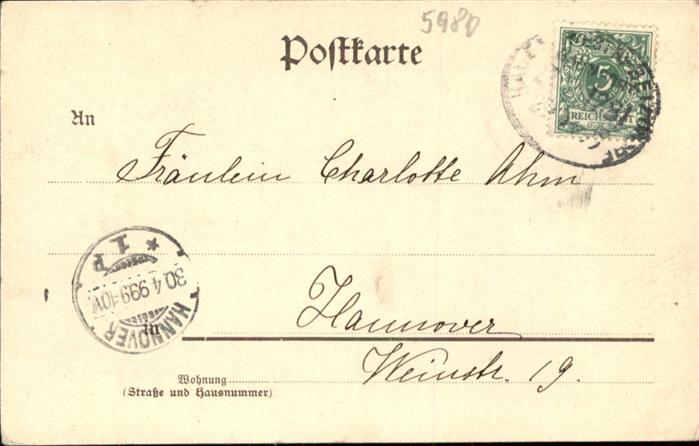 5980
Postkarte
5
REICHSPOST
An
Fräulein Charlotte Ahm
* 1. P
30.4.99.9-10V.
HANNOVER
in
Hannover
Weinstr. 19.
Wohnung
(Straße und Hausnummer)